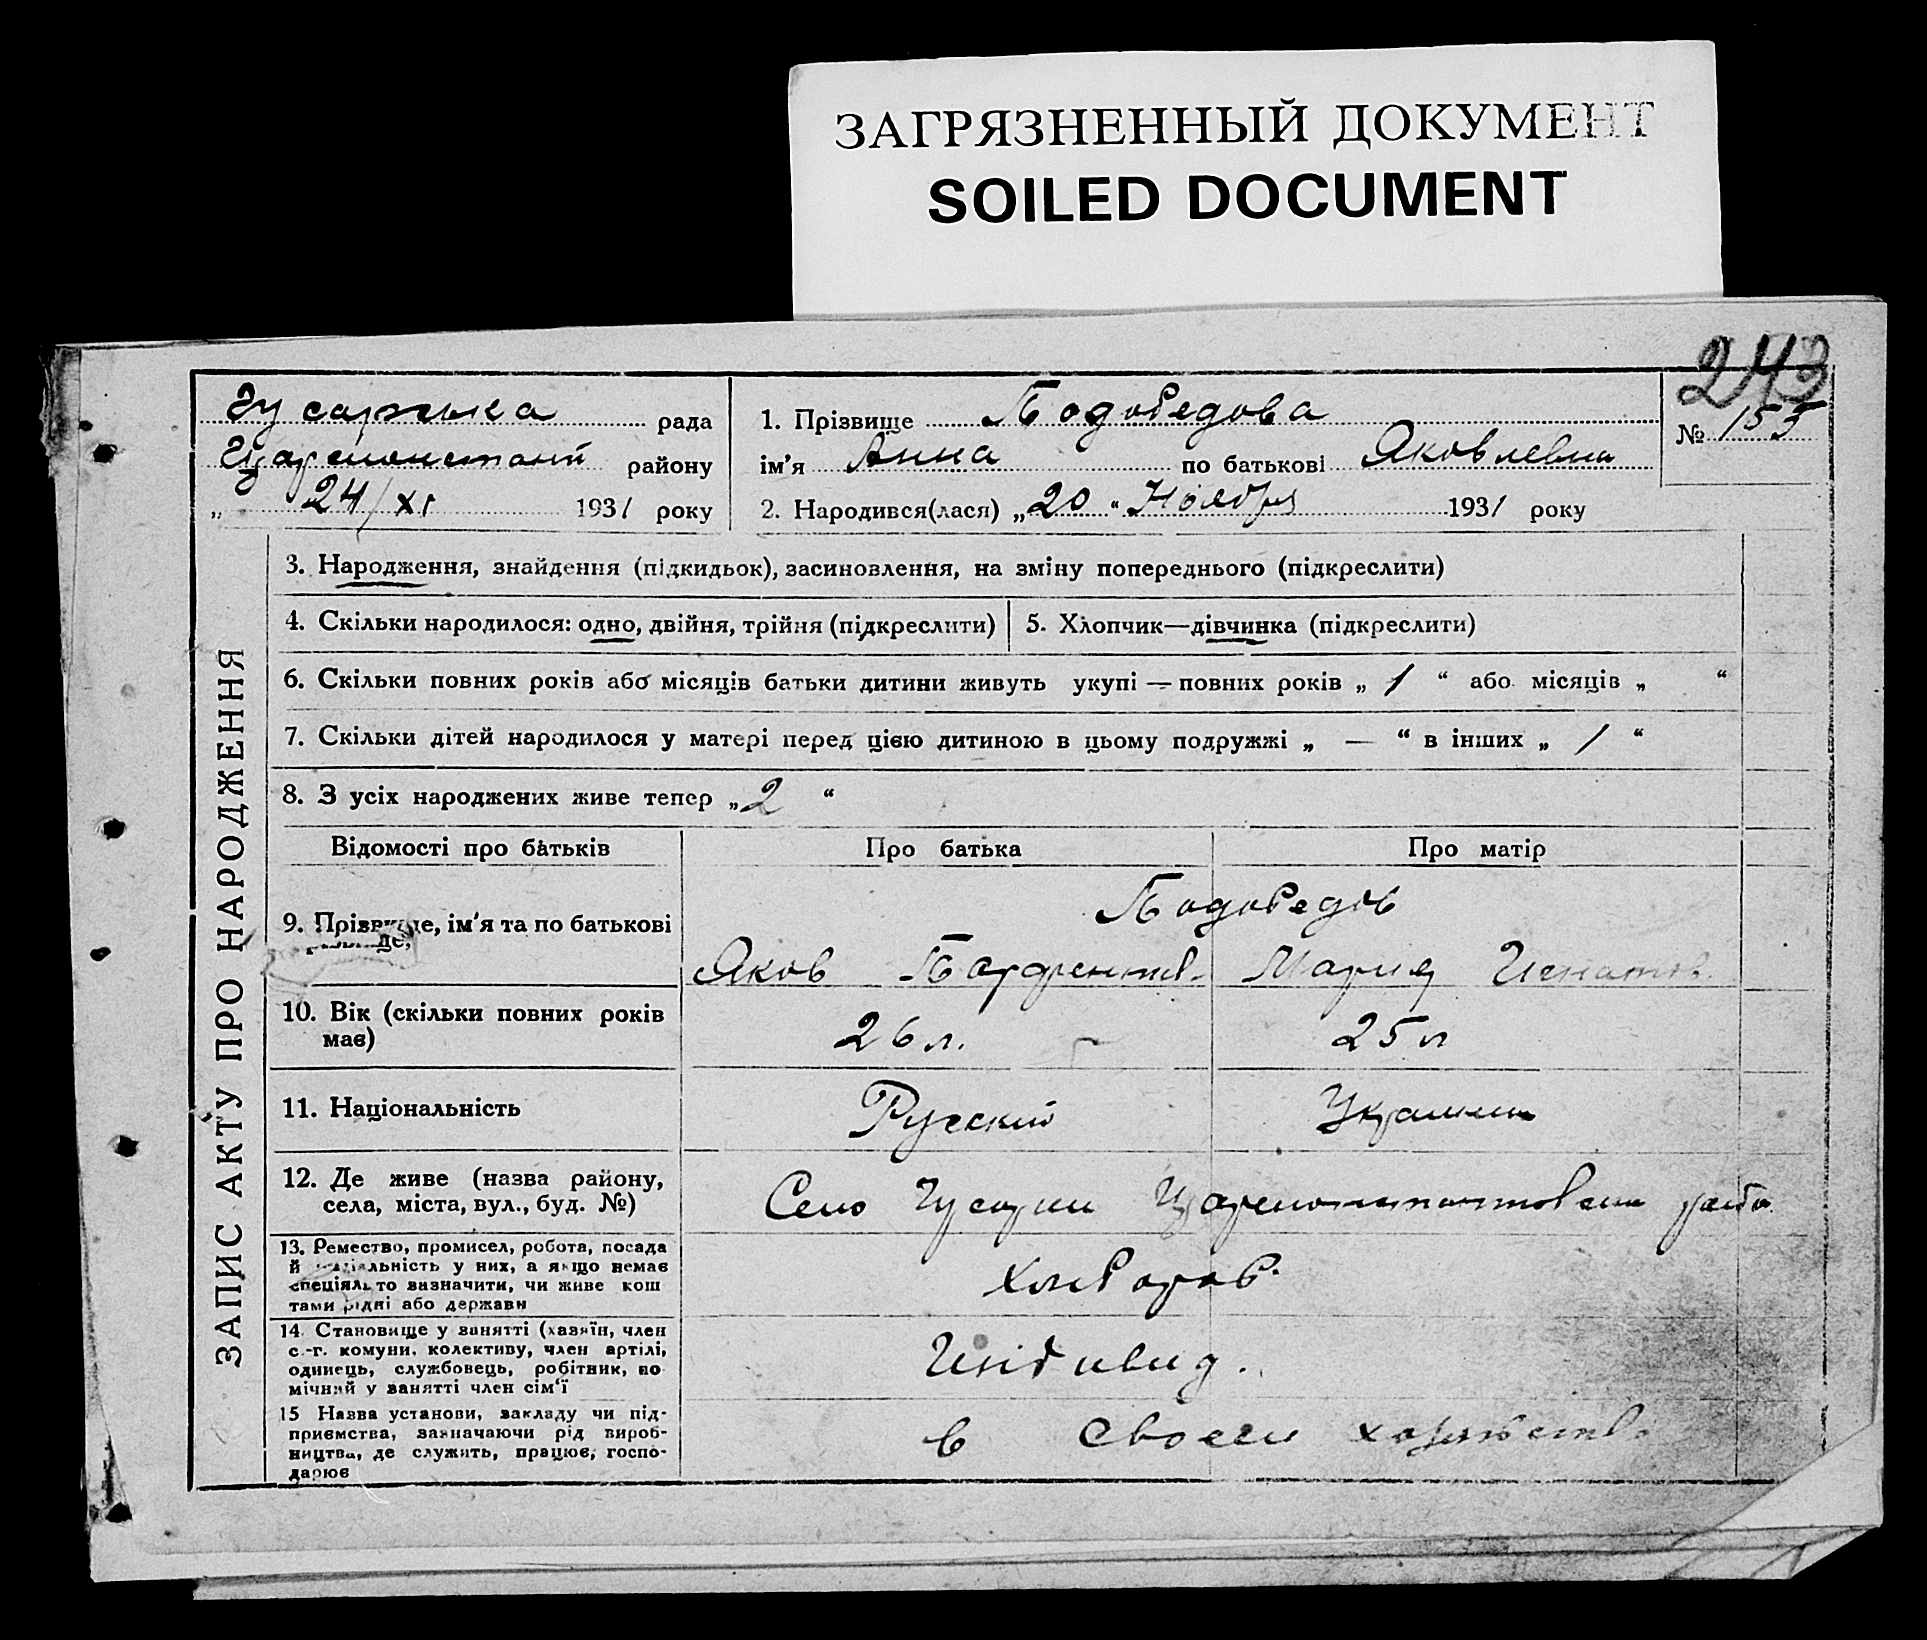 ЗАГРЯЗНЕННЫЙ ДОКУМЕНТ
SOILED DOCUMENT
243
Гусарська рада
Цареконстант району
„ 24/XI 1931 року
1. Прізвище Подобедова
ім'я Анна по батькові Яковлевна
2. Народився(лася) „20“ Ноября 1931 року
№ 155
ЗАПИС АКТУ ПРО НАРОДЖЕННЯ
3. Народження, знайдення (підкидьок), засиновлення, на зміну попереднього (підкреслити)
4. Скільки народилося: одно, двійня, трійня (підкреслити)
5. Хлопчик—дівчинка (підкреслити)
6. Скільки повних років або місяців батьки дитини живуть укупі — повних років „ 1 “ або місяців „ “
7. Скільки дітей народилося у матері перед цією дитиною в цьому подружжі „ — “ в інших „ 1 “
8. З усіх народжених живе тепер „ 2 “
Відомості про батьків Про батька Про матір
9. Прізвище, ім'я та по батькові
Подобедов
Яков Парфентьев. Мария Игнатов.
10. Вік (скільки повних років
має)
26 л. 25 л
11. Національність Русский Украинк
12. Де живе (назва району,
села, міста, вул., буд. №)
Село Гусарки Цареконстантовски райо
13. Ремество, промисел, робота, посада
й спеціяльність у них, а якщо немає
спеціяльто визначити, чи живе кош
тами рідні або держави
Хлебороб.
14. Становище у занятті (хазяїн, член
с.-г. комуни, колективу, член артілі,
одинець, службовець, робітник, по
мічний у занятті член сім'ї
Индивид.
15 Назва установи, закладу чи під-
приємства, зазначаючи рід вироб-
ництва, де служить, працює, госпо-
дарює
в своем хозяйств.